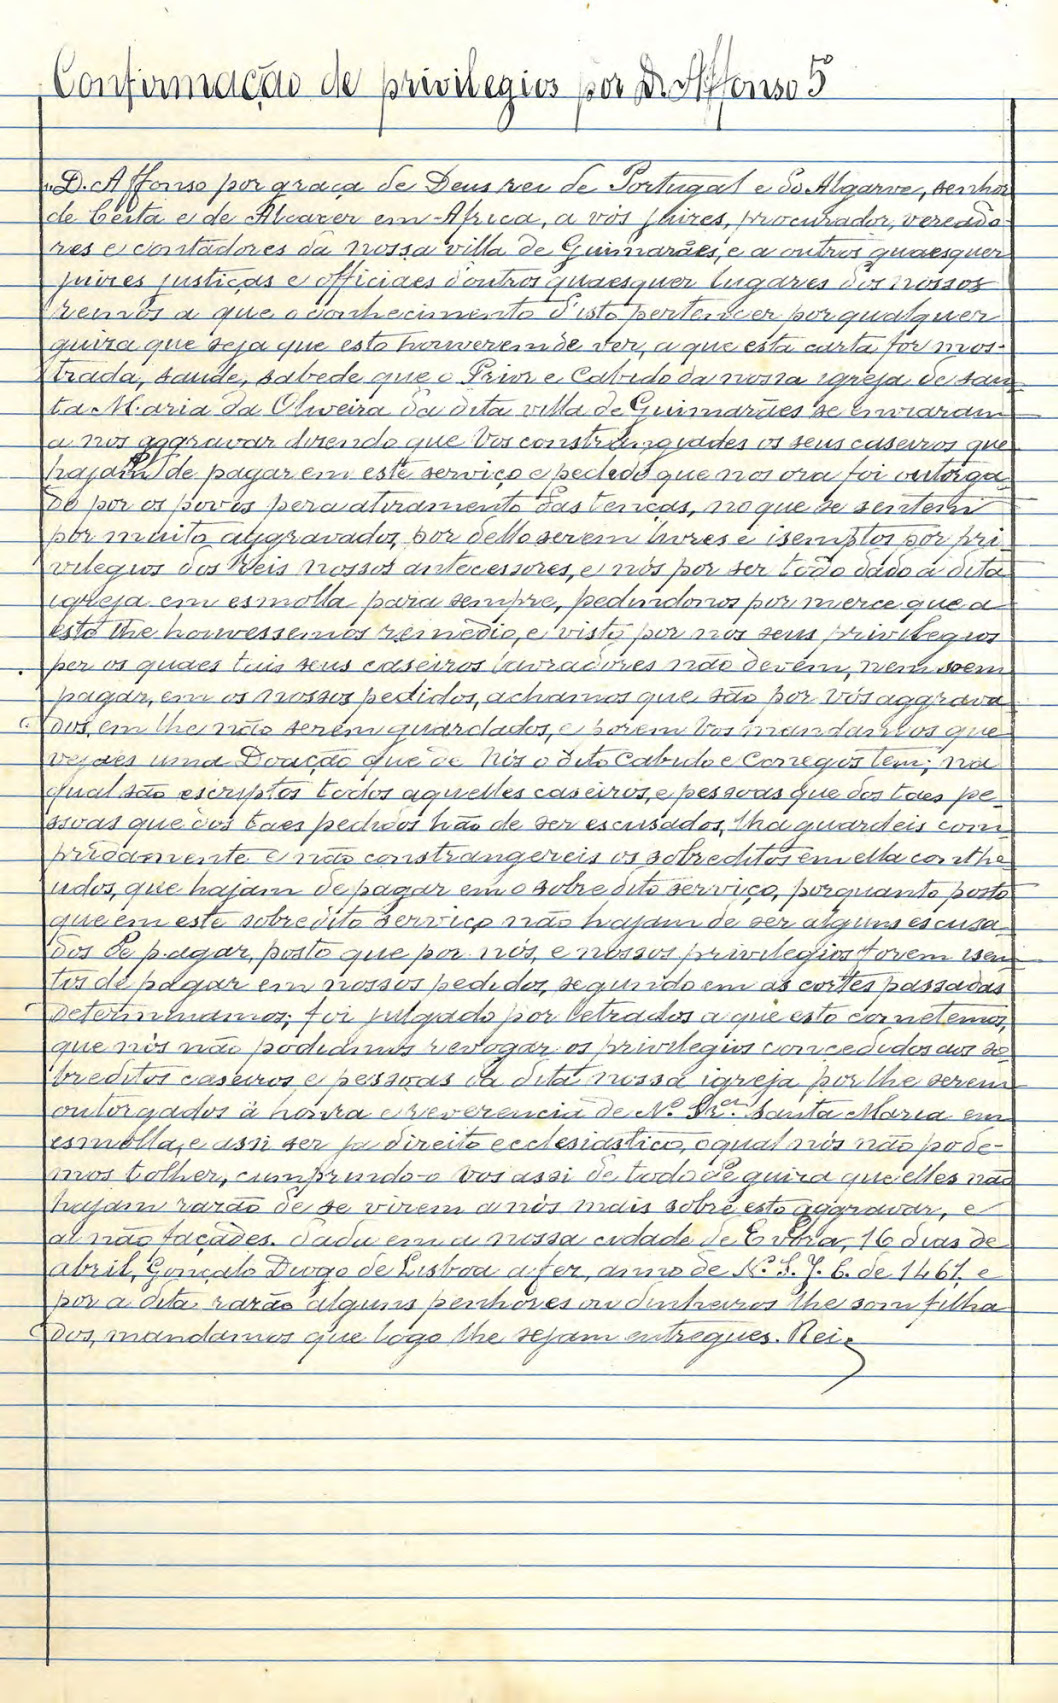 Confirmação de privilegios por D. Affonso 5º
"D. Affonso por graça de Deus rei de Portugal e do Algarve, senhor
de Ceita e de Alcacer em Africa, a vós juizes, procurador, vereado-
res e contadores da nossa villa de Guimarães, e a outros quaesquer
juizes justiças e officiaes d'outros quaesquer lugares dos nossos
reinos a que o conhecimento d'isto pertencer por qualquer
guiza que seja que esto houverem de ver, a que esta carta for mos-
trada, saude, sabede que o Prior e Cabido da nossa igreja de san-
ta Maria da Oliveira da dita villa de Guimarães se enviaram
a nos aggravar dizendo que vos constranguades os seus caseiros que
hajam de pagar em este serviço e pedido que nos ora foi outorga-
do por os povos pera atiramento das tenças, no que se sentem
por muito aggravados, por dello serem livres e isemptos por pri-
vilegios dos Reis nossos antecessores, e nós por ser todo dado á dita
igreja em esmolla para sempre, pedindonos por merce que a
esto lhe houvessemos remedio, e visto por nos seus privilegios
per os quaes tais seus caseiros lavradores não devem, nem soem
pagar, em os nossos pedidos, achamos que são por vós aggrava
dos, em lhe não serem guardados, e porem vos mandamos que
vejaes uma Doação que de Nós o dito Cabido e Conegos tem; na
qual são escriptos todos aquelles caseiros, e pessoas que dos taes pe-
ssoas que dos taes pedidos hão de ser escusados, lha guardeis com-
pridamente e não constrangereis os sobreditos em ella conthe-
udos, que hajam de pagar em o sobredito serviço, porquanto posto
que em este sobredito serviço não hajam de ser alguns escusa-
dos de pagar, posto que por nós, e nossos privilegios forem isen-
tos de pagar em nossos pedidos, segundo em as cortes passadas
determinamos; foi julgado por letrados a que esto cometemos,
que nós não podiamos revogar os privilegios concedidos aos so-
breditos caseiros e pessoas da dita nossa igreja por lhe serem
outorgados á honra e reverencia de N.ª Sr.ª Santa Maria em
esmolla, e assi ser ja direito ecclesiastico, o qual nós não pode-
mos tolher, cumprindo-o vos assi de todo de guiza que elles não
hajam razão de se virem a nós mais sobre esto aggravar, e
al não façades. Dada em a nossa cidade de Evora, 16 dias de
abril, Gonçalo Diogo de Lisboa a fez, anno de N. S. J. C. de 1461, e
por a dita razão alguns penhores ou dinheiros lhe som filha
dos, mandamos que logo lhe sejam entregues. Rei.